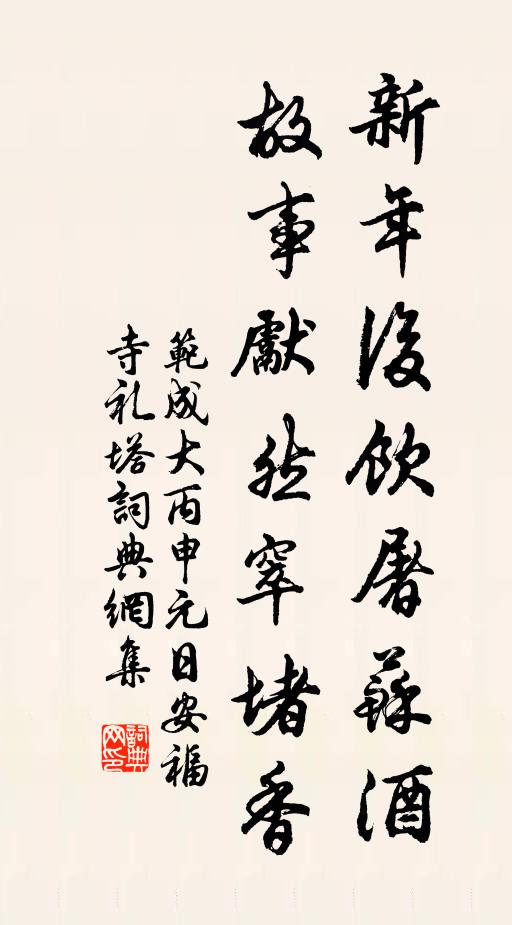 新年後飲屠蘇酒
故事獻然窣堵香
範成大丙申元日安福
寺礼塔詞典網集
詞典
网印